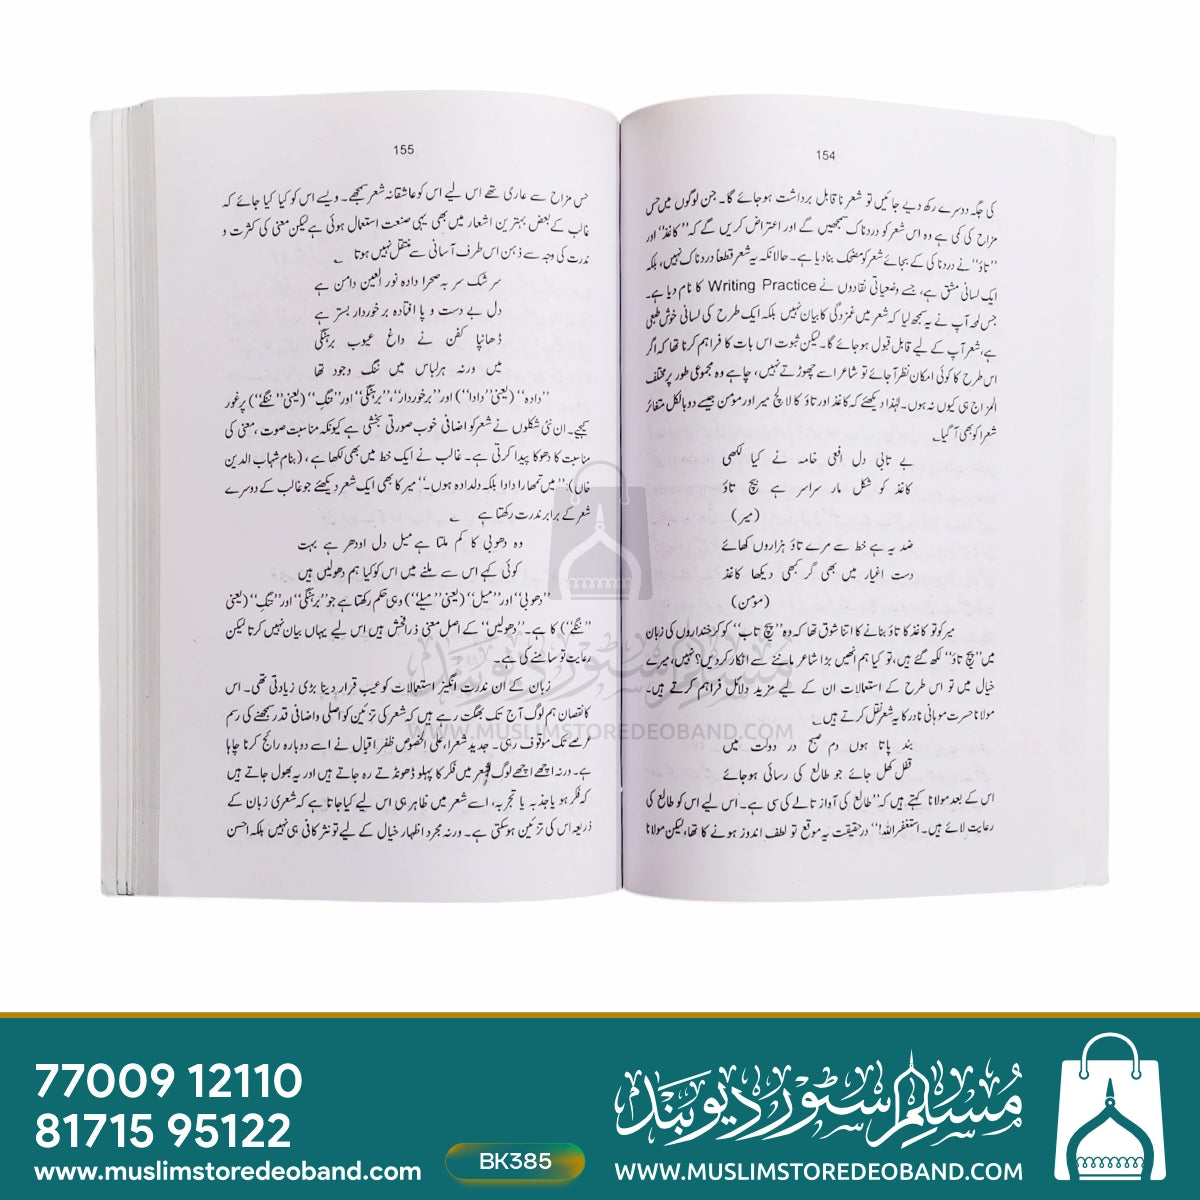 154
کی جگہ دوسرے رکھ دیے جائیں تو شعر ناقابل برداشت ہوجائے گا۔ جن لوگوں میں حس
مزاح کی کمی ہے وہ اس شعر کو دردناک سمجھیں گے اور اعتراض کریں گے کہ ”کاغذ“ اور
”تاؤ“ نے دردناکی کے بجائے شعر کو مضحک بنادیا ہے۔ حالانکہ یہ شعر قطعاً دردناک نہیں، بلکہ
ایک لسانی مشق ہے، جسے وضعیاتی نقادوں نے Writing Practice کا نام دیا ہے۔
جس لمحہ آپ نے یہ سمجھ لیا کہ شعر میں غمزدگی کا بیان نہیں بلکہ ایک طرح کی لسانی خوش طبعی
ہے، شعر آپ کے لیے قابل قبول ہوجائے گا۔ لیکن ثبوت اس بات کا فراہم کرنا تھا کہ اگر
اس طرح کا کوئی امکان نظر آجائے تو شاعر اسے چھوڑتے نہیں، چاہے وہ مجموعی طور پر مختلف
المزاج ہی کیوں نہ ہوں۔ لہٰذا دیکھئے کہ کاغذ اور تاؤ کا لالچ میر اور مومن جیسے دو بالکل متغائر
شعرا کو بھی آ گیا۔
بے تابی دل افعی خامہ نے کیا لکھی
کاغذ کو شکل مار سراسر ہے پیچ تاؤ
(میر)
ضد یہ ہے خط سے مرے تاؤ ہزاروں کھائے
دست اغیار میں بھی گر کبھی دیکھا کاغذ
(مومن)
میر کو تو کاغذ کا تاؤ بنانے کا اتنا شوق تھا کہ وہ ”پیچ تاب“ کو کرخنداروں کی زبان
میں ”پیچ تاؤ“ لکھ گئے ہیں، تو کیا ہم انھیں بڑا شاعر ماننے سے انکار کردیں؟ نہیں، میرے
خیال میں تو اس طرح کے استعمالات ان کے لیے مزید دلائل فراہم کرتے ہیں۔
مولانا حسرت موہانی نادر کا یہ شعر نقل کرتے ہیں
بند پاتا ہوں دم صبح در دولت میں
قفل کھل جائے جو طالع کی رسائی ہوجائے
اس کے بعد مولانا کہتے ہیں کہ ”طالع کی آواز تالے کی سی ہے۔ اس لیے اس کو طالع کی
رعایت لائے ہیں۔ استغفراللہ!“ درحقیقت یہ موقع تو لطف اندوز ہونے کا تھا، لیکن مولانا
155
حس مزاح سے عاری تھے اس لیے اس کو عاشقانہ شعر سمجھے۔ ویسے اس کو کیا کیا جائے کہ
غالب کے بعض بہترین اشعار میں بھی یہی صنعت استعمال ہوئی ہے لیکن معنی کی کثرت و
ندرت کی وجہ سے ذہن اس طرف آسانی سے منتقل نہیں ہوتا
سر شک سر بہ صحرا دادہ نور العین دامن ہے
دل بے دست و پا افتادہ برخوردار بستر ہے
ڈھانپا کفن نے داغ عیوب برہنگی
میں ورنہ ہر لباس میں ننگ وجود تھا
”دادہ“ (یعنی ”دادا“) اور ”برخوردار“، ”برہنگی“ اور ”ننگ“ (یعنی ”ننگے“) پر غور
کیجیے۔ ان نئی شکلوں نے شعر کو اضافی خوب صورتی بخشی ہے کیونکہ مناسبت صوت، معنی کی
مناسبت کا دھوکا پیدا کرتی ہے۔ غالب نے ایک خط میں بھی لکھا ہے، (بنام شہاب الدین
خاں): ”میں تمھارا دادا بلکہ دلدادہ ہوں۔“ میر کا بھی ایک شعر دیکھئے جو غالب کے دوسرے
شعر کے برابر ندرت رکھتا ہے
وہ دھوبی کا کم ملتا ہے میل دل اودھر ہے بہت
کوئی کہے اس سے ملنے میں اس کو کیا ہم دھولیں ہیں
”دھوبی“ اور ”میل“ (یعنی ”میلے“) وہی حکم رکھتا ہے جو ”برہنگی“ اور ”ننگ“ (یعنی
”ننگے“) کا ہے۔ ”دھولیں“ کے اصل معنی ذرا فحش ہیں اس لیے یہاں بیان نہیں کرتا لیکن
رعایت تو سامنے کی ہے۔
زبان کے ان ندرت انگیز استعمالات کو عیب قرار دینا بڑی زیادتی تھی۔ اس
کا نقصان ہم لوگ آج تک بھگت رہے ہیں کہ شعر کی تزئین کو اصلی واضافی قدر سمجھنے کی رسم
عرصے تک موقوف رہی۔ جدید شعرا، علی الخصوص ظفر اقبال نے اسے دوبارہ رائج کرنا چاہا
ہے۔ ورنہ اچھے اچھے لوگ شعر میں فکر کا پہلو ڈھونڈتے رہ جاتے ہیں اور یہ بھول جاتے ہیں
کہ فکر ہو یا جذبہ یا تجربہ، اسے شعر میں ظاہر ہی اس لیے کیا جاتا ہے کہ شعری زبان کے
ذریعہ اس کی تزئین ہوسکتی ہے۔ ورنہ مجرد اظہار خیال کے لیے تو نثر کافی ہی نہیں بلکہ احسن
مسلم سٹور دیوبند
WWW.MUSLIMSTOREDEOBAND.COM
77009 12110
81715 95122
www.muslimstoredeoband.com
BK385
مسلم سٹور دیوبند
WWW.MUSLIMSTOREDEOBAND.COM